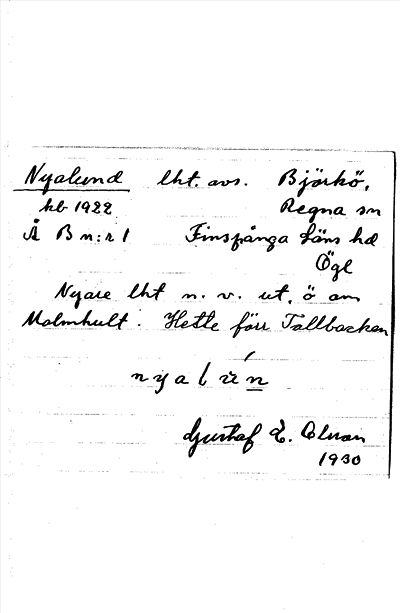 Nyalund lht. avs. Björkö,
kb 1922 Regna sn
Å B n:r 1 Finspånga läns hd
Ögl
Nyare lht n. v. ut, ö om
Malmhult. Hette förr Tallbacken
nyalún
Gustaf E. Olsson
1930